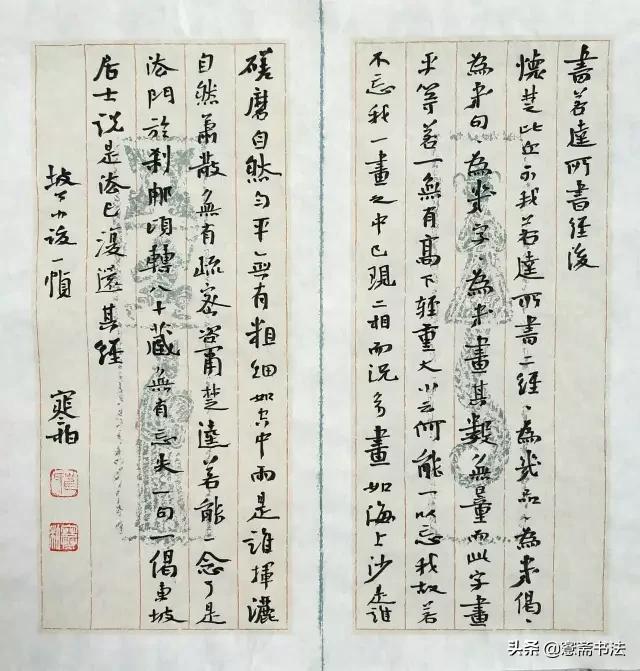 書若逵所書經後
懷楚比丘示我若逵所書二經、為幾品、為幾偈、
為幾句、為幾字、為幾畫其數無量而此字畫
平等若一無有高下輕重大小云何能一以忘我故若
不忘我一畫之中已現二相而況多畫如海上沙是誰
磋磨自然勻平無有粗細如空中雨是誰揮灑
自然蕭散無有疏密咨爾楚逵若能一念了是
法門於剎那頃轉八十藏無有忘失一句一偈東坡
居士說是法已復還其經
坡公小跋一幀
头条 @愙斋书法